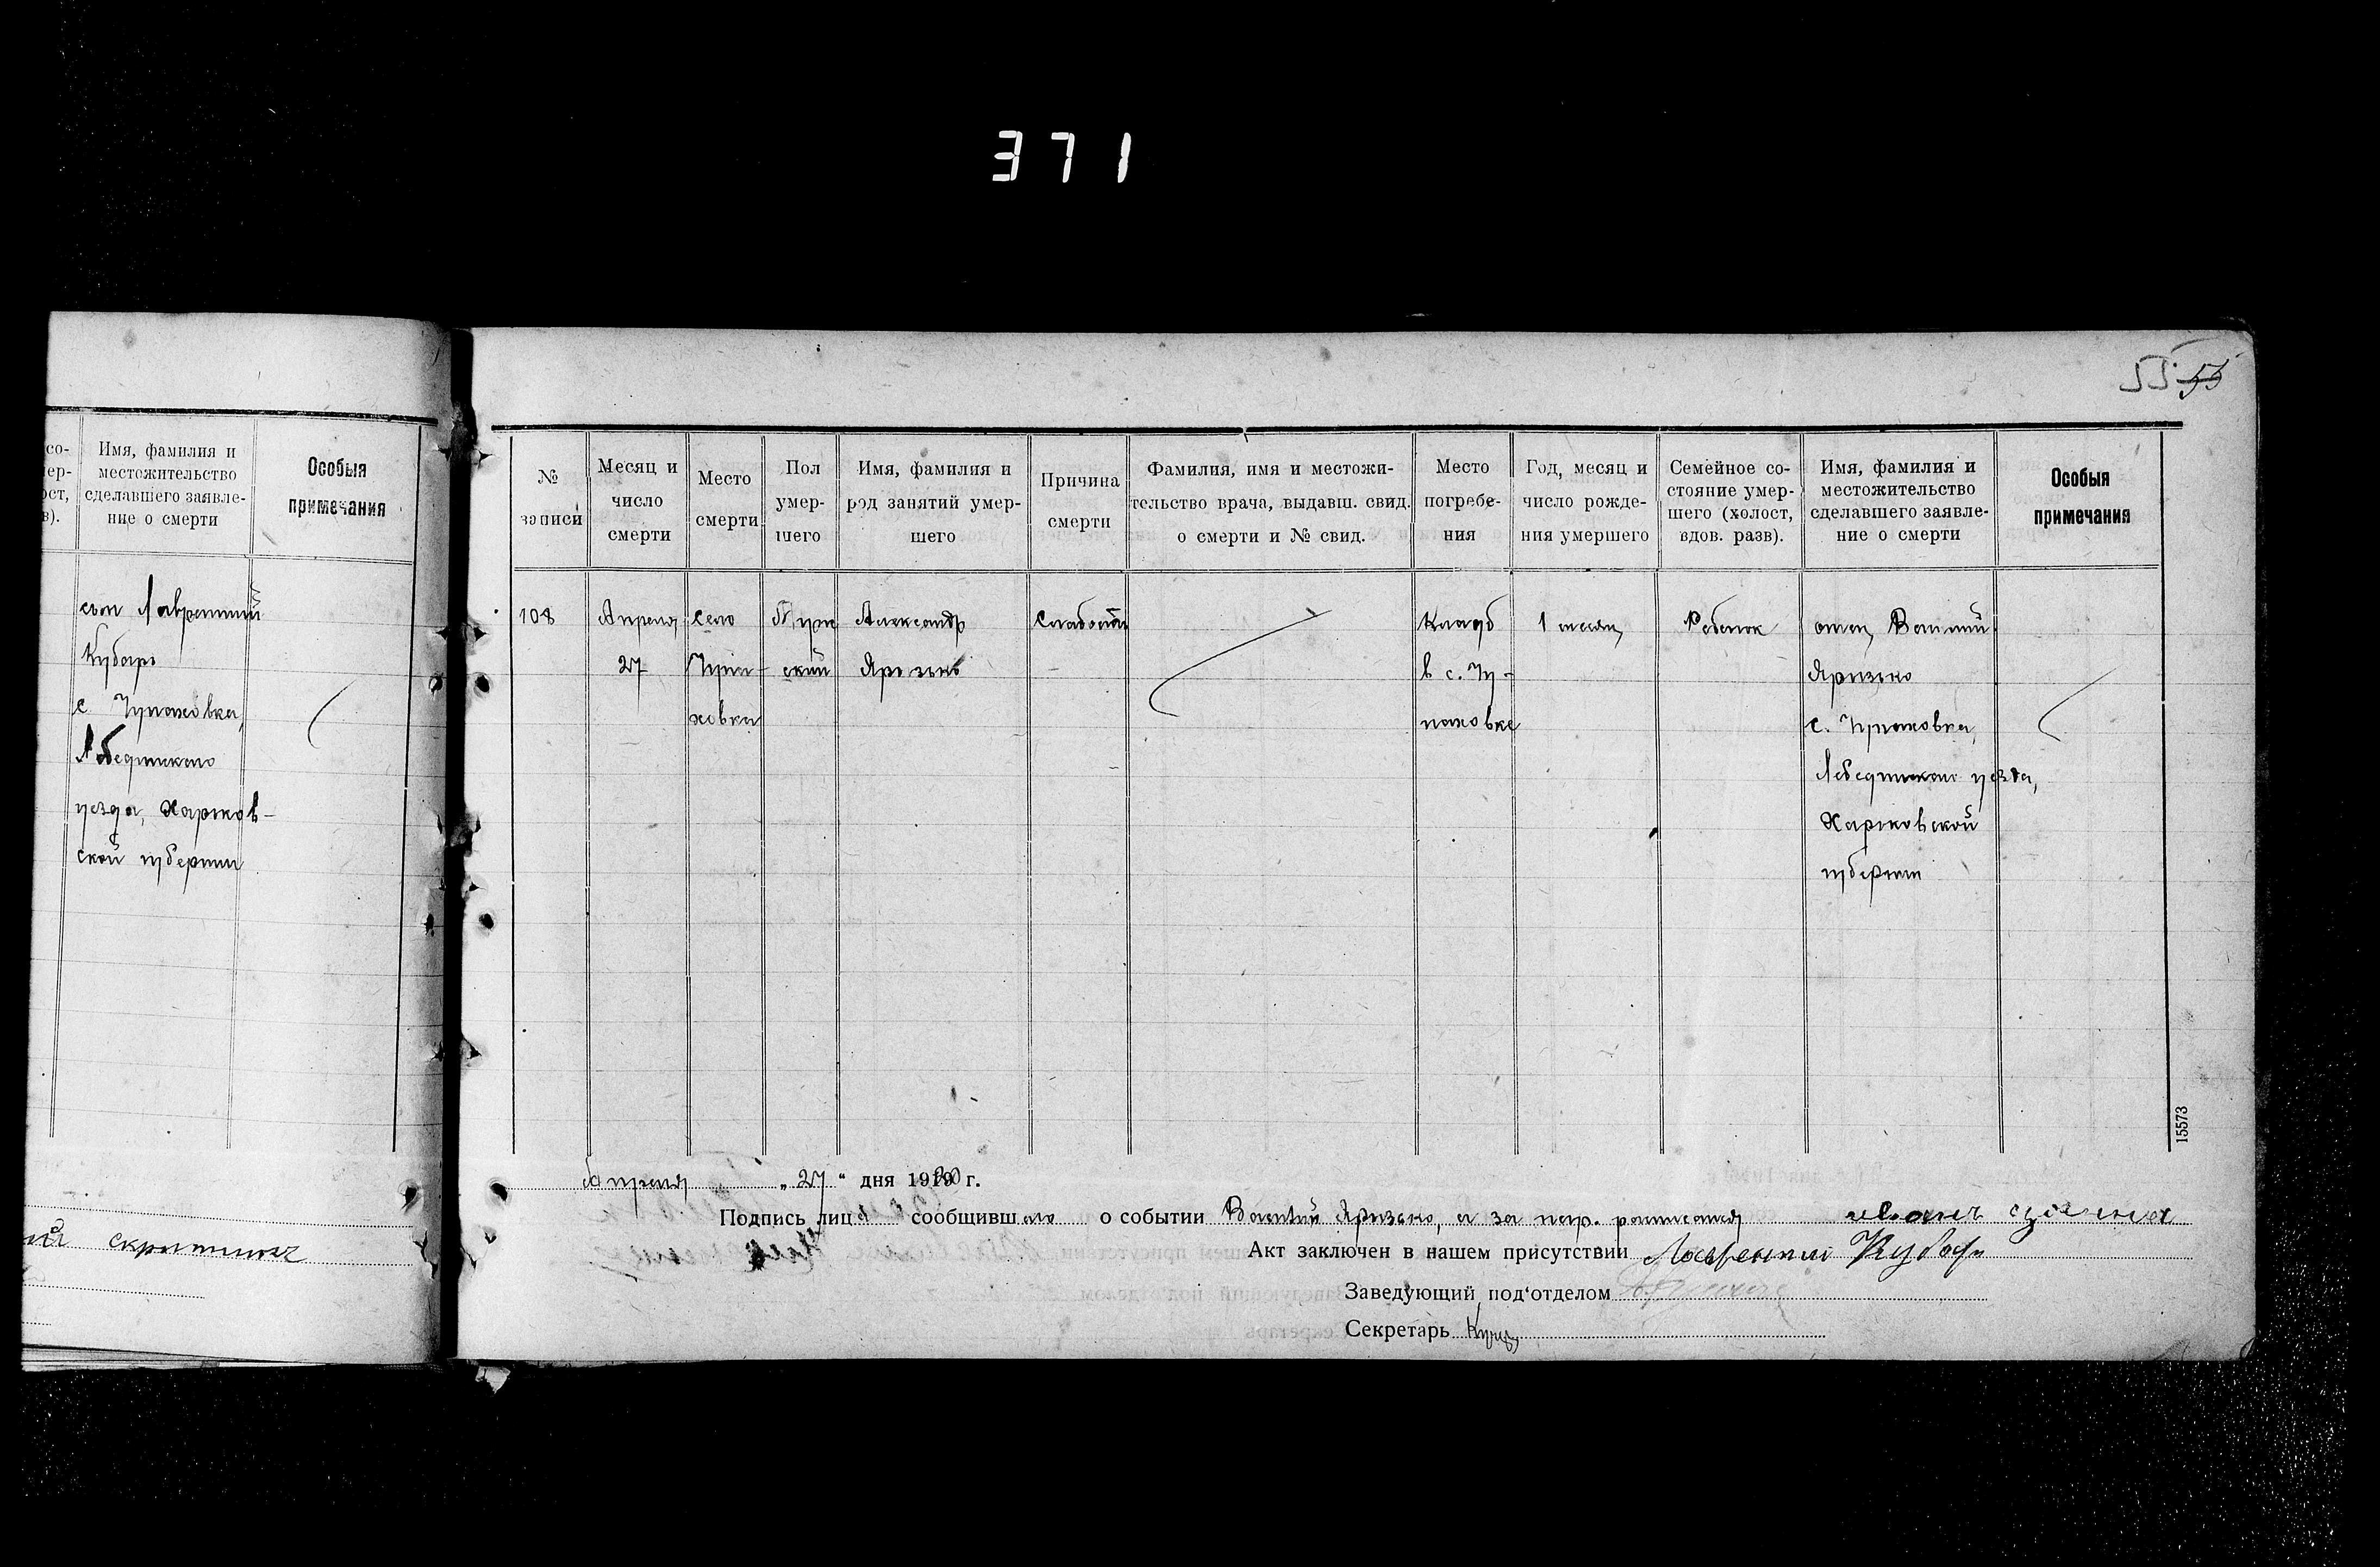 371
55 55
со-
ер-
ост,
в).
Имя, фамилия и
местожительство
сделавшего заявле-
ние о смерти
Особыя
примечания
сын Лаврентий
Кубарь
с Чупаховка,
Лебединскаго
уезда, Харьков-
ской губернии
№
записи
Месяц и
число
смерти
Место
смерти
Пол
умер-
шего
Имя, фамилия и
род занятий умер-
шего
Причина
смерти
Фамилия, имя и местожи-
тельство врача, выдавш. свид.
о смерти и № свид.
Место
погребе-
ния
Год, месяц и
число рожде-
ния умершего
Семейное со-
стояние умер-
шего (холост,
вдов. разв).
Имя, фамилия и
местожительство
сделавшего заявле-
ние о смерти
Особыя
примечания
108
Апреля
27
Село
Чупа-
ховка
ский
Александр
Слабость
Кладб
в с. Чу-
паховке
1 месяц
Ребенок
отец
с. Чупаховка,
Лебединскаго уезда,
Харьковской
губернии
Апреля „ 27 “ дня 1920 г.
Подпись лица сообщившаго о событии а за негр. расписался иван
Акт заключен в нашем присутствии Лаврентий Кубарь
Заведующий под'отделом
Секретарь
15573